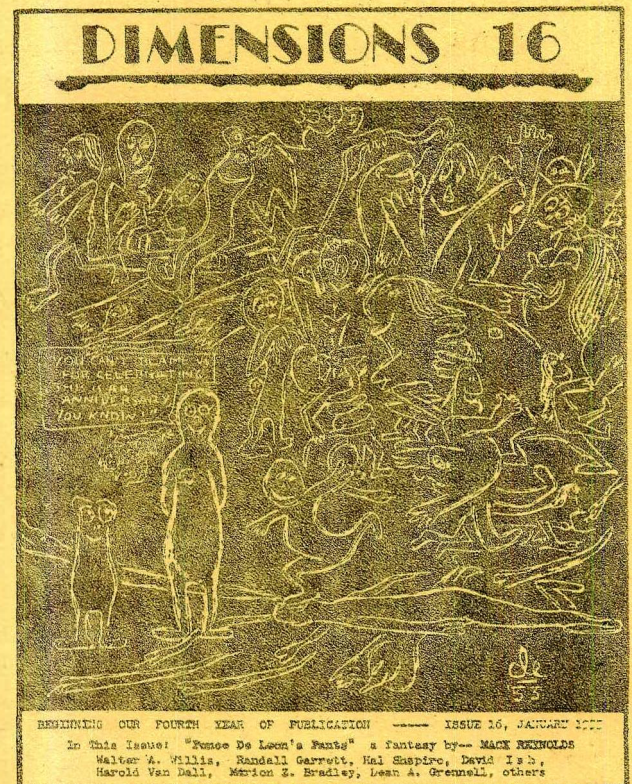 DIMENSIONS 16
YOU CAN'T BLAME US
FOR CELEBRATING
THIS IS AN
ANNIVERSARY
YOU KNOW!"
de
53
BEGINNING OUR FOURTH YEAR OF PUBLICATION ---- ISSUE 16, JANUARY
In This Issue: "Ponce De Leon's Pants" a fantasy by-- MACK REYNOLDS
Walter A. Willis, Randall Garrett, Hal Shapiro, David Ish,
Harold Van Dall, Marion Z. Bradley, Dean A. Grennell, others